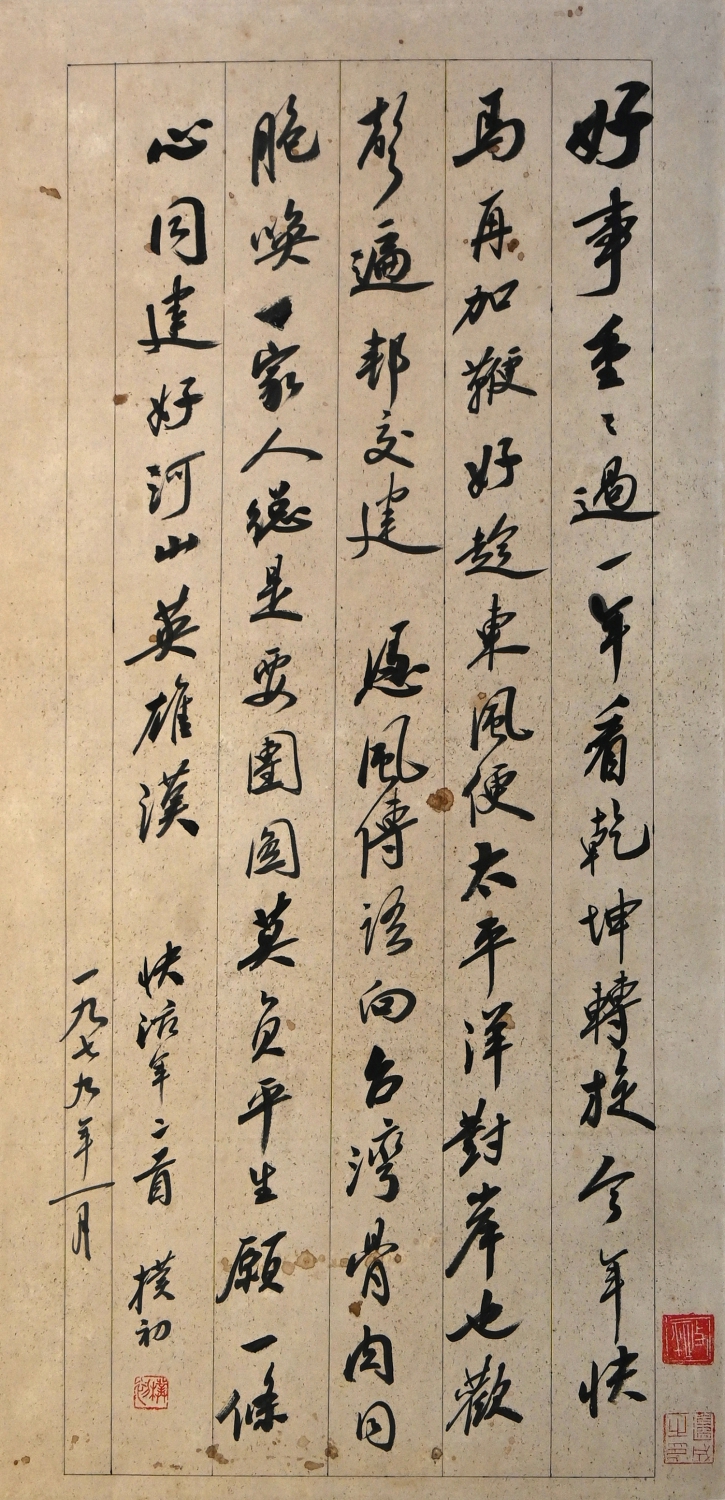 好事重〻過一年看乾坤轉旋今年快
馬再加鞭好趁東風便太平洋對岸也歡
聲遍邦交建 憑風傳語向台灣骨肉同
胞喚一家人總是要團圓莫負平生願一條
心同建好河山英雄漢 快活年二首 樸初
一九七九年一月
樸初